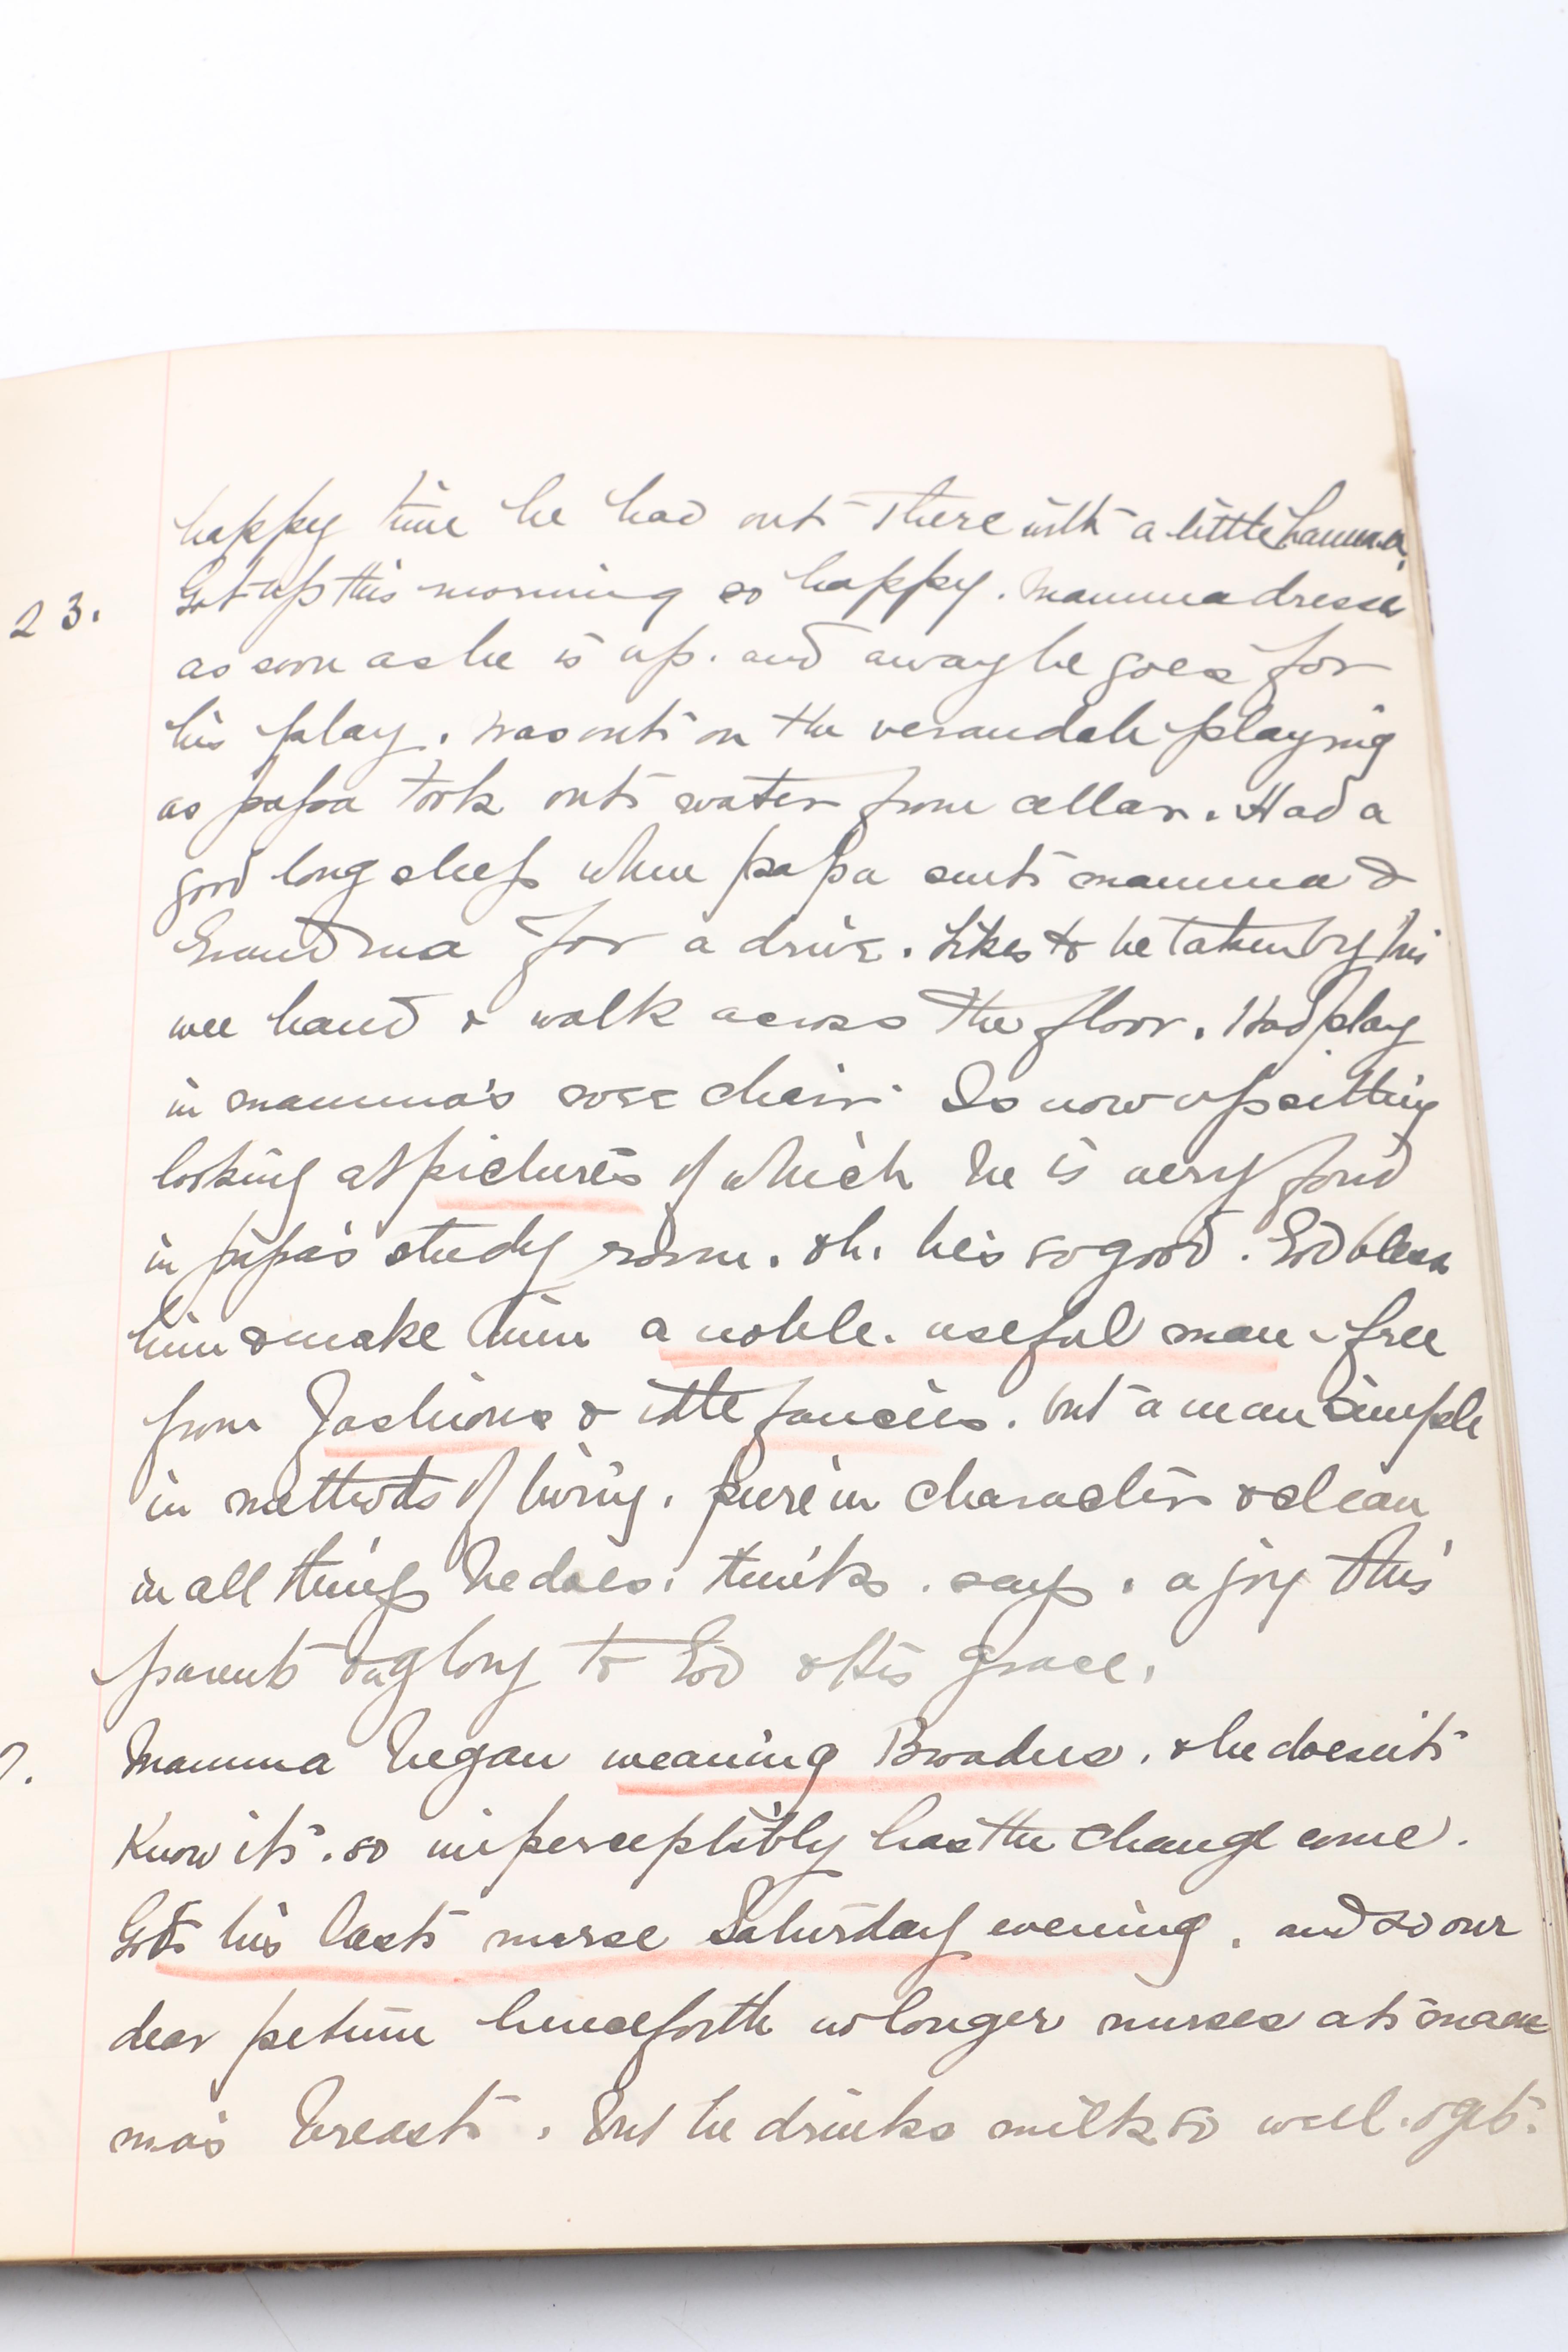 happy time he had out there with a little hammer.
23. Got up this morning so happy. Mamma dresses
as soon as he is up. and away he goes for
his play. Was out on the verandah playing
as papa took out water from cellar. Had a
good long sleep when papa sent mamma &
Grandma for a drive. Likes to be taken by his
wee hand & walk across the floor. Had play
in mamma's chair. Is now up sitting
looking at pictures of which he is very fond
in papa's study room. Oh. he's so good. God bless
him & make him a noble. useful man - free
from fashions & idle fancies. but a man simple
in methods of living. pure in character & clean
in all things he does. thinks. says. a joy this
parents & a glory to God & His grace.
7. Mamma began weaning Bwadus. & he doesn't
know it. so imperceptibly has the change come.
Got his last nurse Saturday evening. and so our
dear petum henceforth no longer nurses at mam
ma's breast. But he drinks milk so well. & gets.